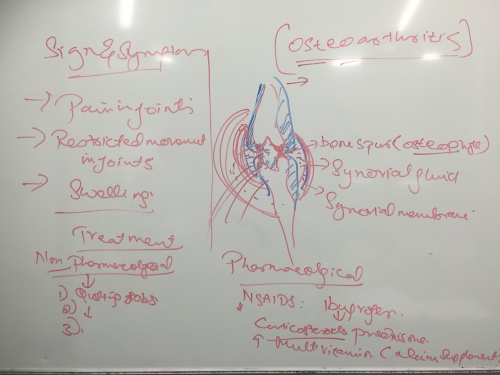 Sign & Symptoms
→ Pain in joints
→ Restricted movement
in joints
→ Swelling
Treatment
Non Pharmacological
1).
2)
3).
(Osteoarthritis)
bone spur (osteophyte)
Synovial fluid
Synovial membrane
Pharmacological
NSAIDS: Ibuprofen.
Corticosteroids prednisone.
Multivitamin (calcium supplement)